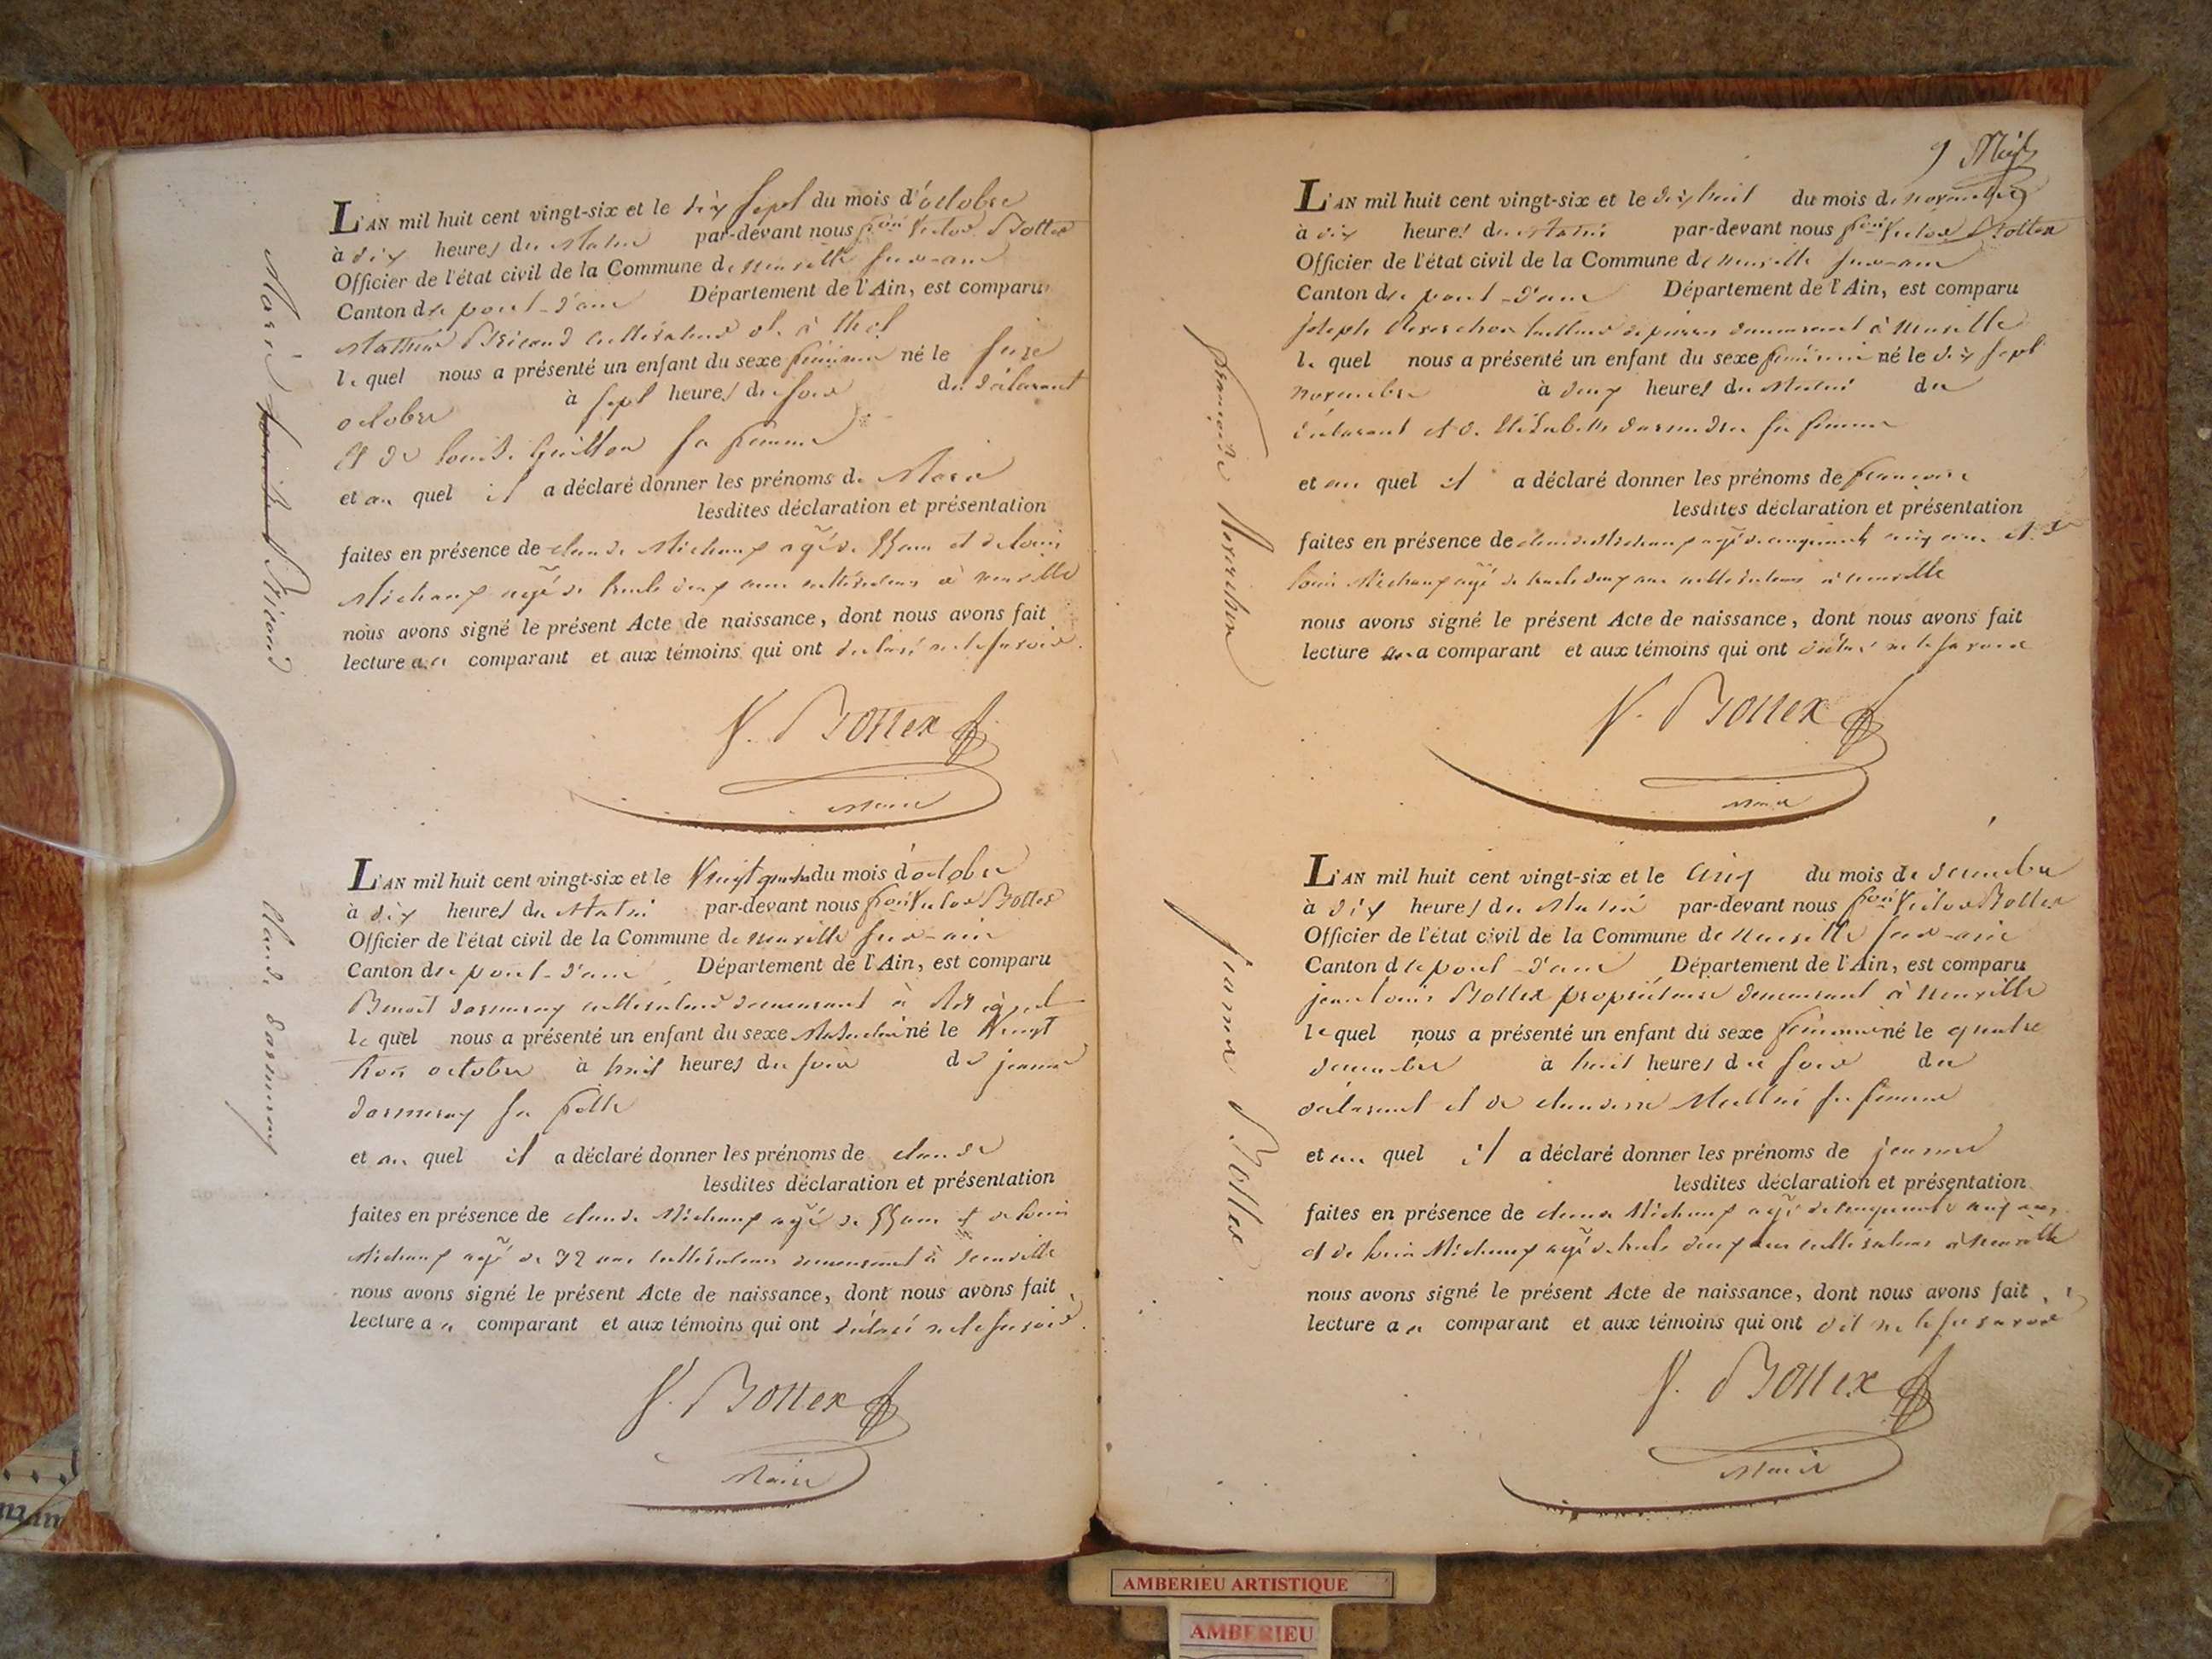 L'AN mil huit cent vingt-six et le dix sept du mois d'octobre
à dix heures du Matin par-devant nous Victor Bottex
Officier de l'état civil de la Commune de neuville sur-ain
Canton de pont-d'ain Département de l'Ain, est comparu
Bricand cultivateur à
le quel nous a présenté un enfant du sexe féminin né le seize
octobre à sept heures du soir du déclarant
et de Louise Guillon sa femme
et au quel il a déclaré donner les prénoms de Marie
lesdites déclaration et présentation
faites en présence de claude Michaux agé de 55 ans et de louis
Michaux agé de trente deux ans cultivateurs à neuville
nous avons signé le présent Acte de naissance, dont nous avons fait
lecture au comparant et aux témoins qui ont déclaré ne le savoir.
V. Bottex
Maire
Marie Bricand
L'AN mil huit cent vingt-six et le Vingt quatre du mois d'octobre
à dix heures du Matin par-devant nous Victor Bottex
Officier de l'état civil de la Commune de neuville sur-ain
Canton de pont-d'ain Département de l'Ain, est comparu
Benoit cultivateur demeurant à
le quel nous a présenté un enfant du sexe Masculin né le Vingt
trois octobre à huit heures du soir de jeanne
sa fille
et au quel il a déclaré donner les prénoms de claude
lesdites déclaration et présentation
faites en présence de claude Michaux agé de 55 ans et de louis
Michaux agé de 32 ans cultivateurs demeurant à neuville
nous avons signé le présent Acte de naissance, dont nous avons fait
lecture au comparant et aux témoins qui ont déclaré ne le savoir.
V. Bottex
Maire
Claude
9
L'AN mil huit cent vingt-six et le dix huit du mois de novembre
à dix heures du Matin par-devant nous Victor Bottex
Officier de l'état civil de la Commune de neuville sur-ain
Canton de pont-d'ain Département de l'Ain, est comparu
joseph tailleur de pierres demeurant à Neuville
le quel nous a présenté un enfant du sexe féminin né le dix sept
novembre à deux heures du Matin du
déclarant et d'Elisabeth sa femme
et au quel il a déclaré donner les prénoms de françoise
lesdites déclaration et présentation
faites en présence de claude Michaux agé de cinquante cinq ans et de
louis Michaux agé de trente deux ans cultivateurs à neuville
nous avons signé le présent Acte de naissance, dont nous avons fait
lecture au comparant et aux témoins qui ont déclaré ne le savoir
V. Bottex
Maire
françoise
L'AN mil huit cent vingt-six et le cinq du mois de décembre
à dix heures du Matin par-devant nous Victor Bottex
Officier de l'état civil de la Commune de neuville sur-ain
Canton de pont-d'ain Département de l'Ain, est comparu
jean louis Bottex propriétaire demeurant à Neuville
le quel nous a présenté un enfant du sexe féminin né le quatre
décembre à huit heures du soir du
déclarant et de claudine sa femme
et au quel il a déclaré donner les prénoms de jeanne
lesdites déclaration et présentation
faites en présence de claude Michaux agé de cinquante cinq ans
et de louis Michaux agé de trente deux ans cultivateurs à Neuville
nous avons signé le présent Acte de naissance, dont nous avons fait
lecture au comparant et aux témoins qui ont dit ne le savoir
V. Bottex
Maire
jeanne Bottex.
AMBERIEU ARTISTIQUE
AMBERIEU